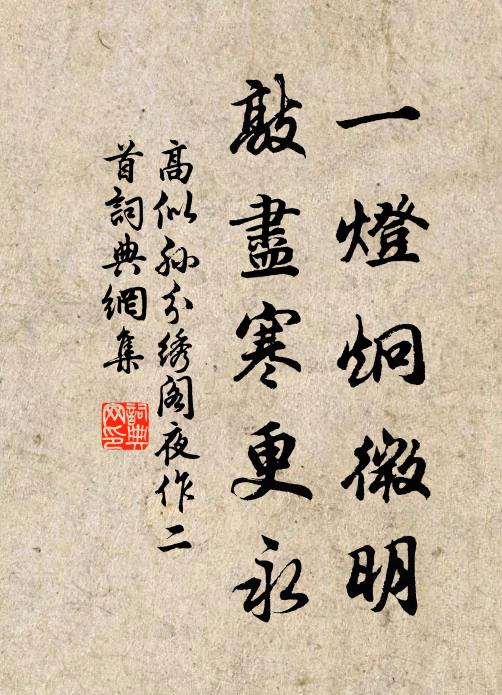 一燈炯微明
敲盡寒更永
高似孙分绣阁夜作二
首詞典網集
詞典网印